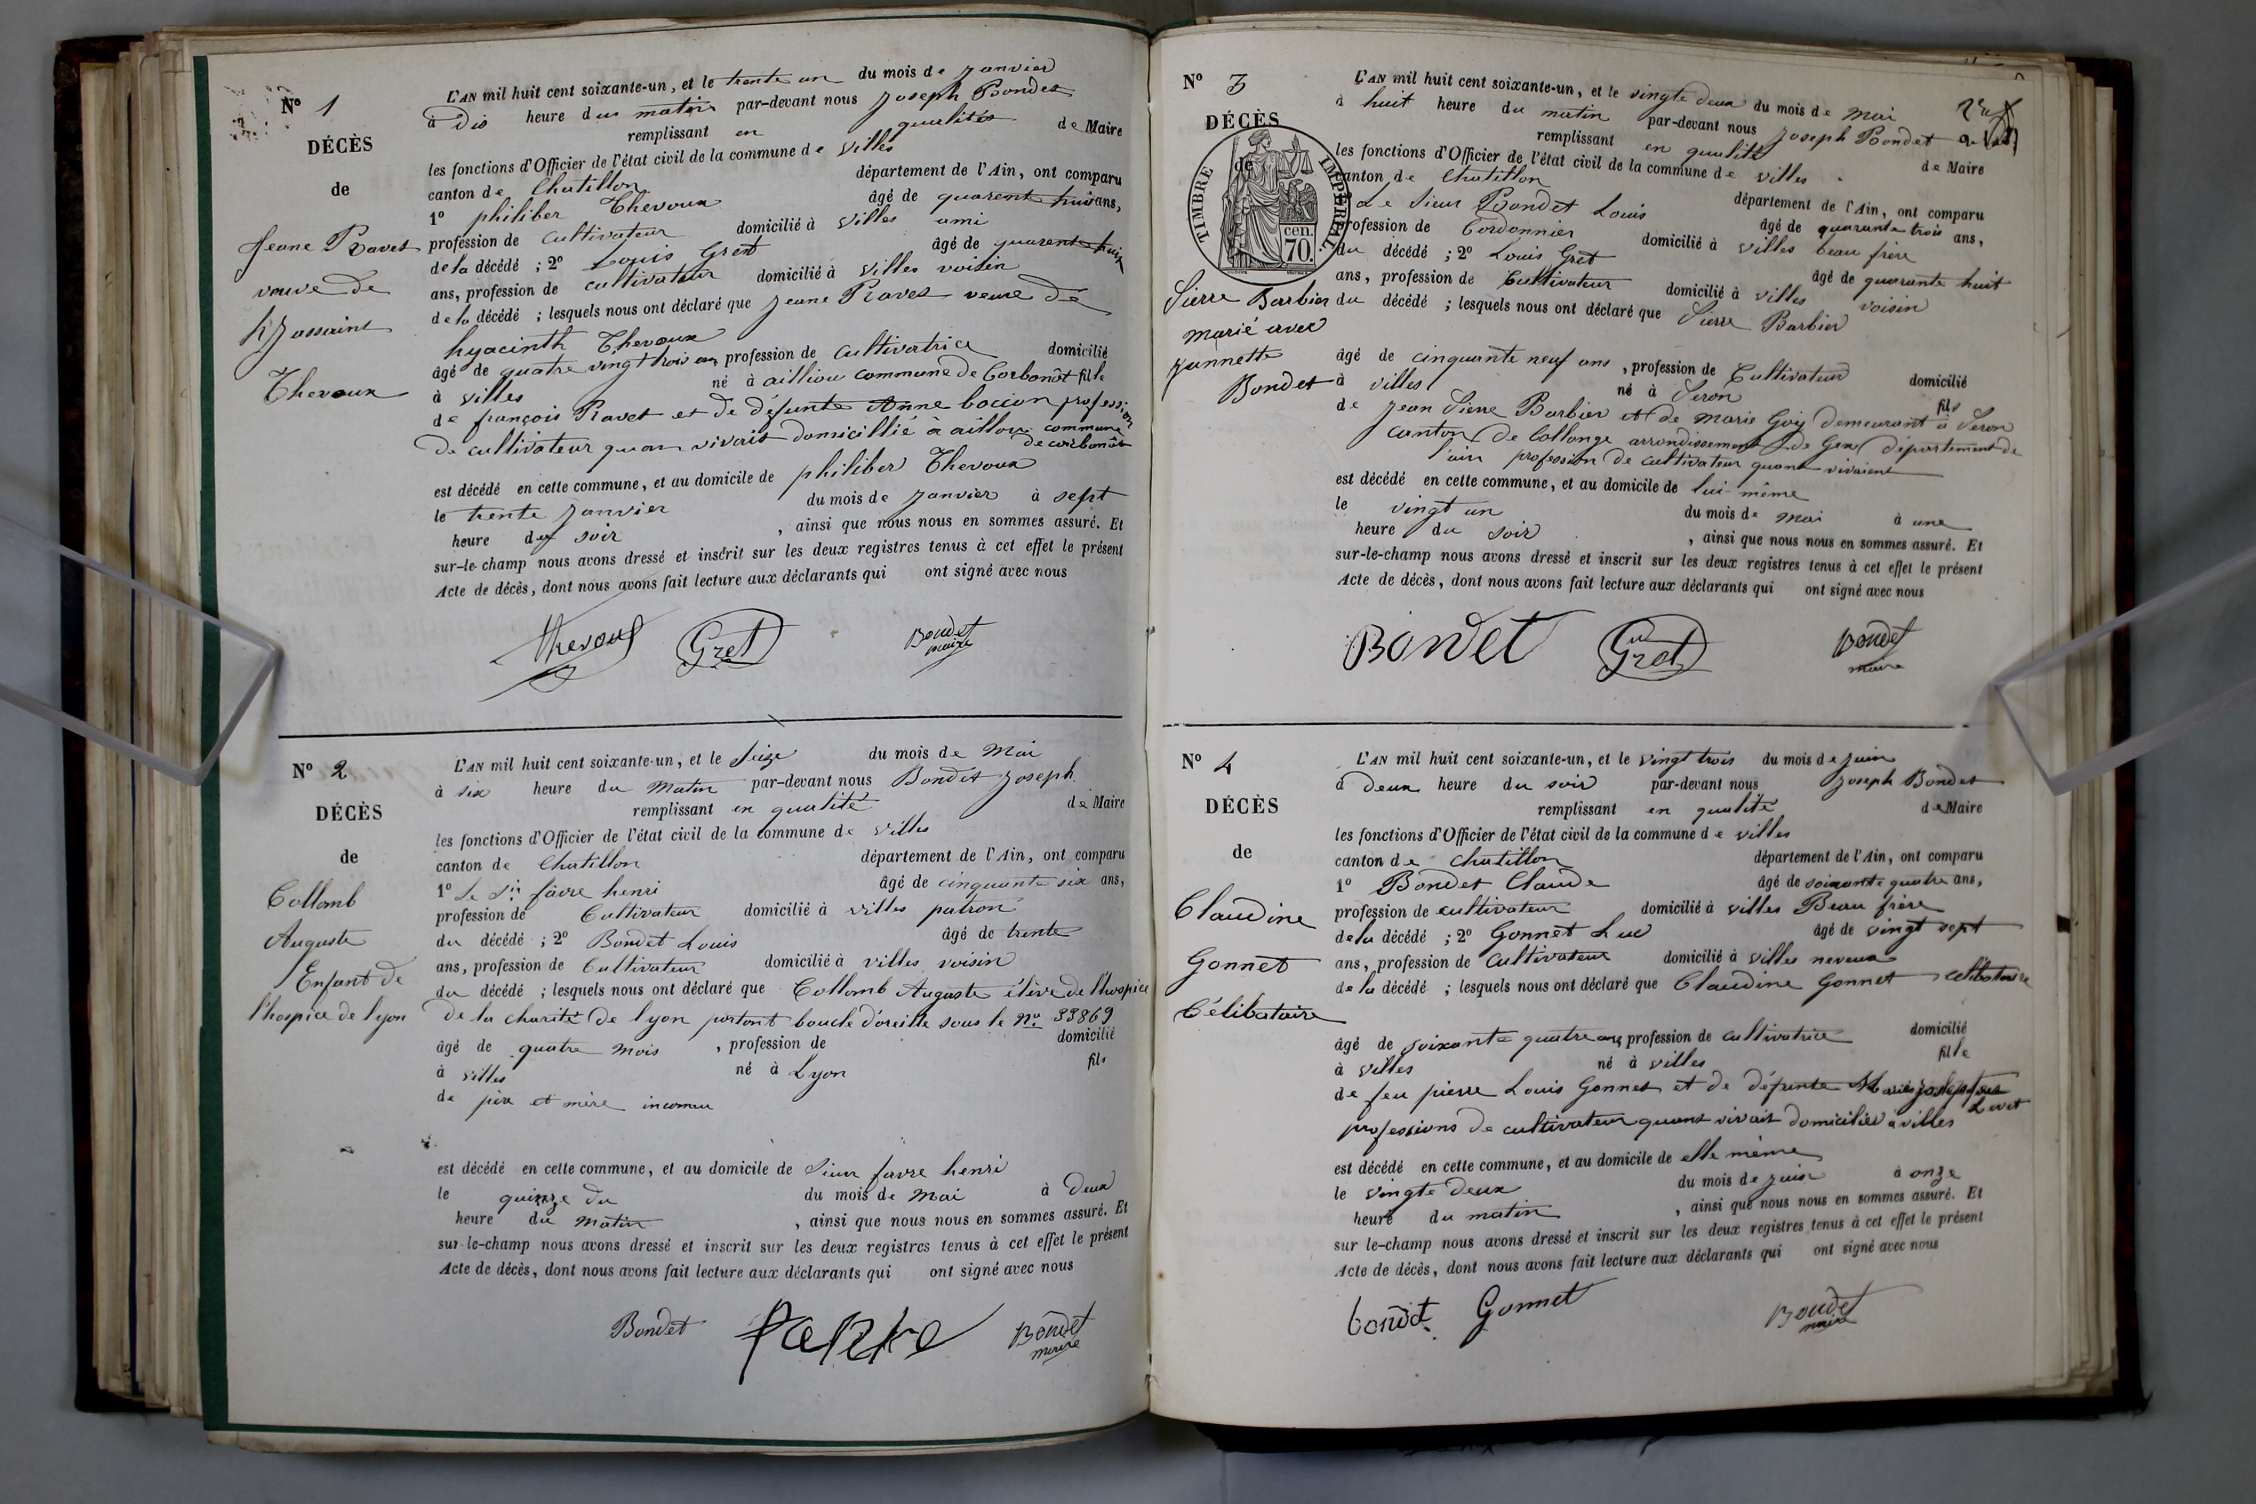 N° 1
DÉCÈS
de
Jeane Ravet
veuve de
hyassaint
Thevoux
L'AN mil huit cent soixante-un, et le trente un du mois de Janvier
à Dis heure dus matin par-devant nous Joseph Bondet
remplissant en qualités de Maire
les fonctions d'Officier de l'état civil de la commune de villes
canton de Chatillon département de l'Ain, ont comparu
1° philiber Thevoux âgé de quarent huit ans,
profession de cultivateur domicilié à villes ami
de la décédé ; 2° Louis Gret âgé de quarante huit
ans, profession de cultivateur domicilié à villes voisin
de la décédé ; lesquels nous ont déclaré que Jeane Ravet veuve de
hyacinth Thevoux
âgé de quatre vingt trois ans profession de cultivatrice domicilié
à villes né à aillion commune de Corbonôt fille
de françois Ravet et de défunte Anne bocion profession
de cultivateur quan vivais domicillié à aillon commune
de corbonôt
est décédé en cette commune, et au domicile de philiber Thevoux
le trente Janvier du mois de Janvier à sept
heure du soir , ainsi que nous nous en sommes assuré. Et
sur-le-champ nous avons dressé et inscrit sur les deux registres tenus à cet effet le présent
Acte de décès, dont nous avons fait lecture aux déclarants qui ont signé avec nous
thevoux Gret Bondet
maire
N° 2
DÉCÈS
de
Collomb
Auguste
Enfant de
l'hospice de lyon
L'AN mil huit cent soixante-un, et le Seize du mois de Mai
à six heure du Matin par-devant nous Bondet Joseph
remplissant en qualité de Maire
les fonctions d'Officier de l'état civil de la commune de villes
canton de Chatillon département de l'Ain, ont comparu
1° Le Sir favre henri âgé de cinquante six ans,
profession de Cultivateur domicilié à villes patron
du décédé ; 2° Bondet Louis âgé de trente
ans, profession de Cultivateur domicilié à villes voisin
du décédé ; lesquels nous ont déclaré que Collomb Auguste élève de l'hospice
De la charité de lyon portant boucle d'oreille sous le No 33869
âgé de quatre mois , profession de domicilié
à villes né à Lyon fils
de père et mère inconnu
est décédé en cette commune, et au domicile de Sieur favre henri
le quinze du du mois de Mai à deux
heure du matin , ainsi que nous nous en sommes assuré. Et
sur-le-champ nous avons dressé et inscrit sur les deux registres tenus à cet effet le présent
Acte de décès, dont nous avons fait lecture aux déclarants qui ont signé avec nous
Bondet favre Bondet
maire
N° 3
DÉCÈS
de
TIMBRE IMPÉRIAL.
cen.
70.
Pierre Barbier
marié avec
Jannette
Bondet
L'AN mil huit cent soixante-un, et le vingte deux du mois de Mai
à huit heure du matin par-devant nous Joseph Bondet
remplissant en qualité de Maire
les fonctions d'Officier de l'état civil de la commune de villes
canton de Chatillon département de l'Ain, ont comparu
Le Sieur Bondet Louis âgé de quarante trois ans,
profession de Cordonnier domicilié à villes beau frère
du décédé ; 2° Louis Gret âgé de quarante huit
ans, profession de Cultivateur domicilié à villes voisin
du décédé ; lesquels nous ont déclaré que Pierre Barbier
âgé de cinquante neuf ans , profession de Cultivateur domicilié
à villes né à Peron fils
de Jean Pierre Barbier et de Marie Goy demeurant à Peron
canton de Collonge arrondissement de Gex département de
l'ain profession de cultivateur quant vivaient
est décédé en cette commune, et au domicile de lui même
le vingt un du mois de Mai à une
heure du soir , ainsi que nous nous en sommes assuré. Et
sur-le-champ nous avons dressé et inscrit sur les deux registres tenus à cet effet le présent
Acte de décès, dont nous avons fait lecture aux déclarants qui ont signé avec nous
Bondet Gret Bondet
maire
N° 4
DÉCÈS
de
Claudine
Gonnet
Célibataire
L'AN mil huit cent soixante-un, et le vingt trois du mois de Juin
à Deux heure du soir par-devant nous Joseph Bondet
remplissant en qualité de Maire
les fonctions d'Officier de l'état civil de la commune de villes
canton de chatillon département de l'Ain, ont comparu
1° Bondet Claude âgé de soixante quatre ans,
profession de cultivateur domicilié à villes Beau frère
de la décédé ; 2° Gonnet Luc âgé de vingt sept
ans, profession de Cultivateur domicilié à villes neveux
de la décédé ; lesquels nous ont déclaré que Claudine Gonnet célibataire
âgé de soixante quatre ans profession de cultivatrice domicilié
à villes né à villes fille
de feu pierre Louis Gonnet et de défunte Marie
Levet
professions de cultivateur quant vivait domiciliés à villes
est décédé en cette commune, et au domicile de elle même
le vingte deux du mois de Juin à onze
heure du matin , ainsi que nous nous en sommes assuré. Et
sur le-champ nous avons dressé et inscrit sur les deux registres tenus à cet effet le présent
Acte de décès, dont nous avons fait lecture aux déclarants qui ont signé avec nous
bondet Gonnet Bondet
maire